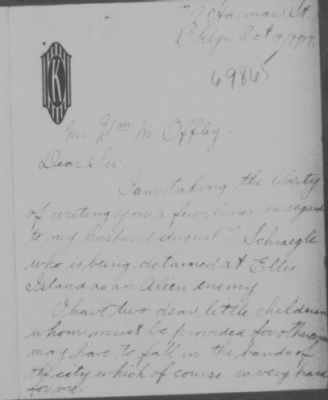 Harman St.
Bklyn Oct 9/1917.
69865
K
Mr. Wm M Offley.
Dear Sir.
I am taking the liberty
of writing you a few lines in regard
to my husband August F Schraegle
who is being detained at Ellis
Island as an Alien enemy
I have two dear little children
whom must be provided for otherwise
may have to fall in the hands of
the city which of course is very hard
for me.